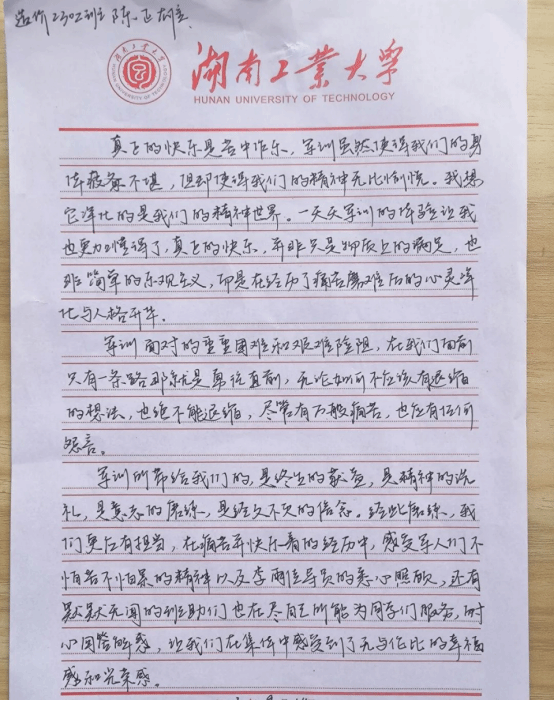 造价2302班 陈
湖南工业大学
HUNAN UNIVERSITY OF TECHNOLOGY
真正的快乐是苦中作乐，军训虽然使得我们的身
体疲惫不堪，但却使得我们的精神无比愉悦。我想
它净化的是我们的精神世界。一天天军训的体验让我
也更加懂得了，真正的快乐，并非只是物质上的满足，也
非简单的乐观主义，而是在经历了痛苦磨难后的心灵净
化与人格升华.
军训面对的重重困难和艰难险阻，在我们面前
只有一条路那就是勇往直前，无论如何不应该有退缩
的想法，也绝不能退缩，尽管有万般痛苦，也应有任何
怨言。
军训所带给我们的，是终生的获益，是精神的洗
礼，是意志的磨练，是经久不灭的信念。经此磨练，我
们更应有担当，在痛苦并快乐着的经历中，感受军人们不
怕苦不怕累的精神以及李 两位导员的悉心照顾，还有
默默无闻的班助们也在尽自己所能为同学们服务，耐
心用答解惑，让我们在集体中感受到了无与伦比的幸福
感和光荣感。